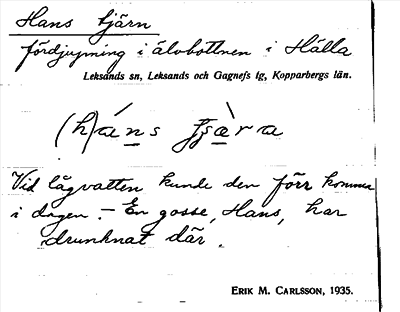 Hans tjärn
fördjupning i älvbottnen i Hälla
Leksands sn, Leksands och Gagnefs tg, Kopparbergs län.
(h)áns
Vid lågvatten kunde den förr komma
i dagen. – En gosse, Hans, har
drunknat där.
ERIK M. CARLSSON, 1935.